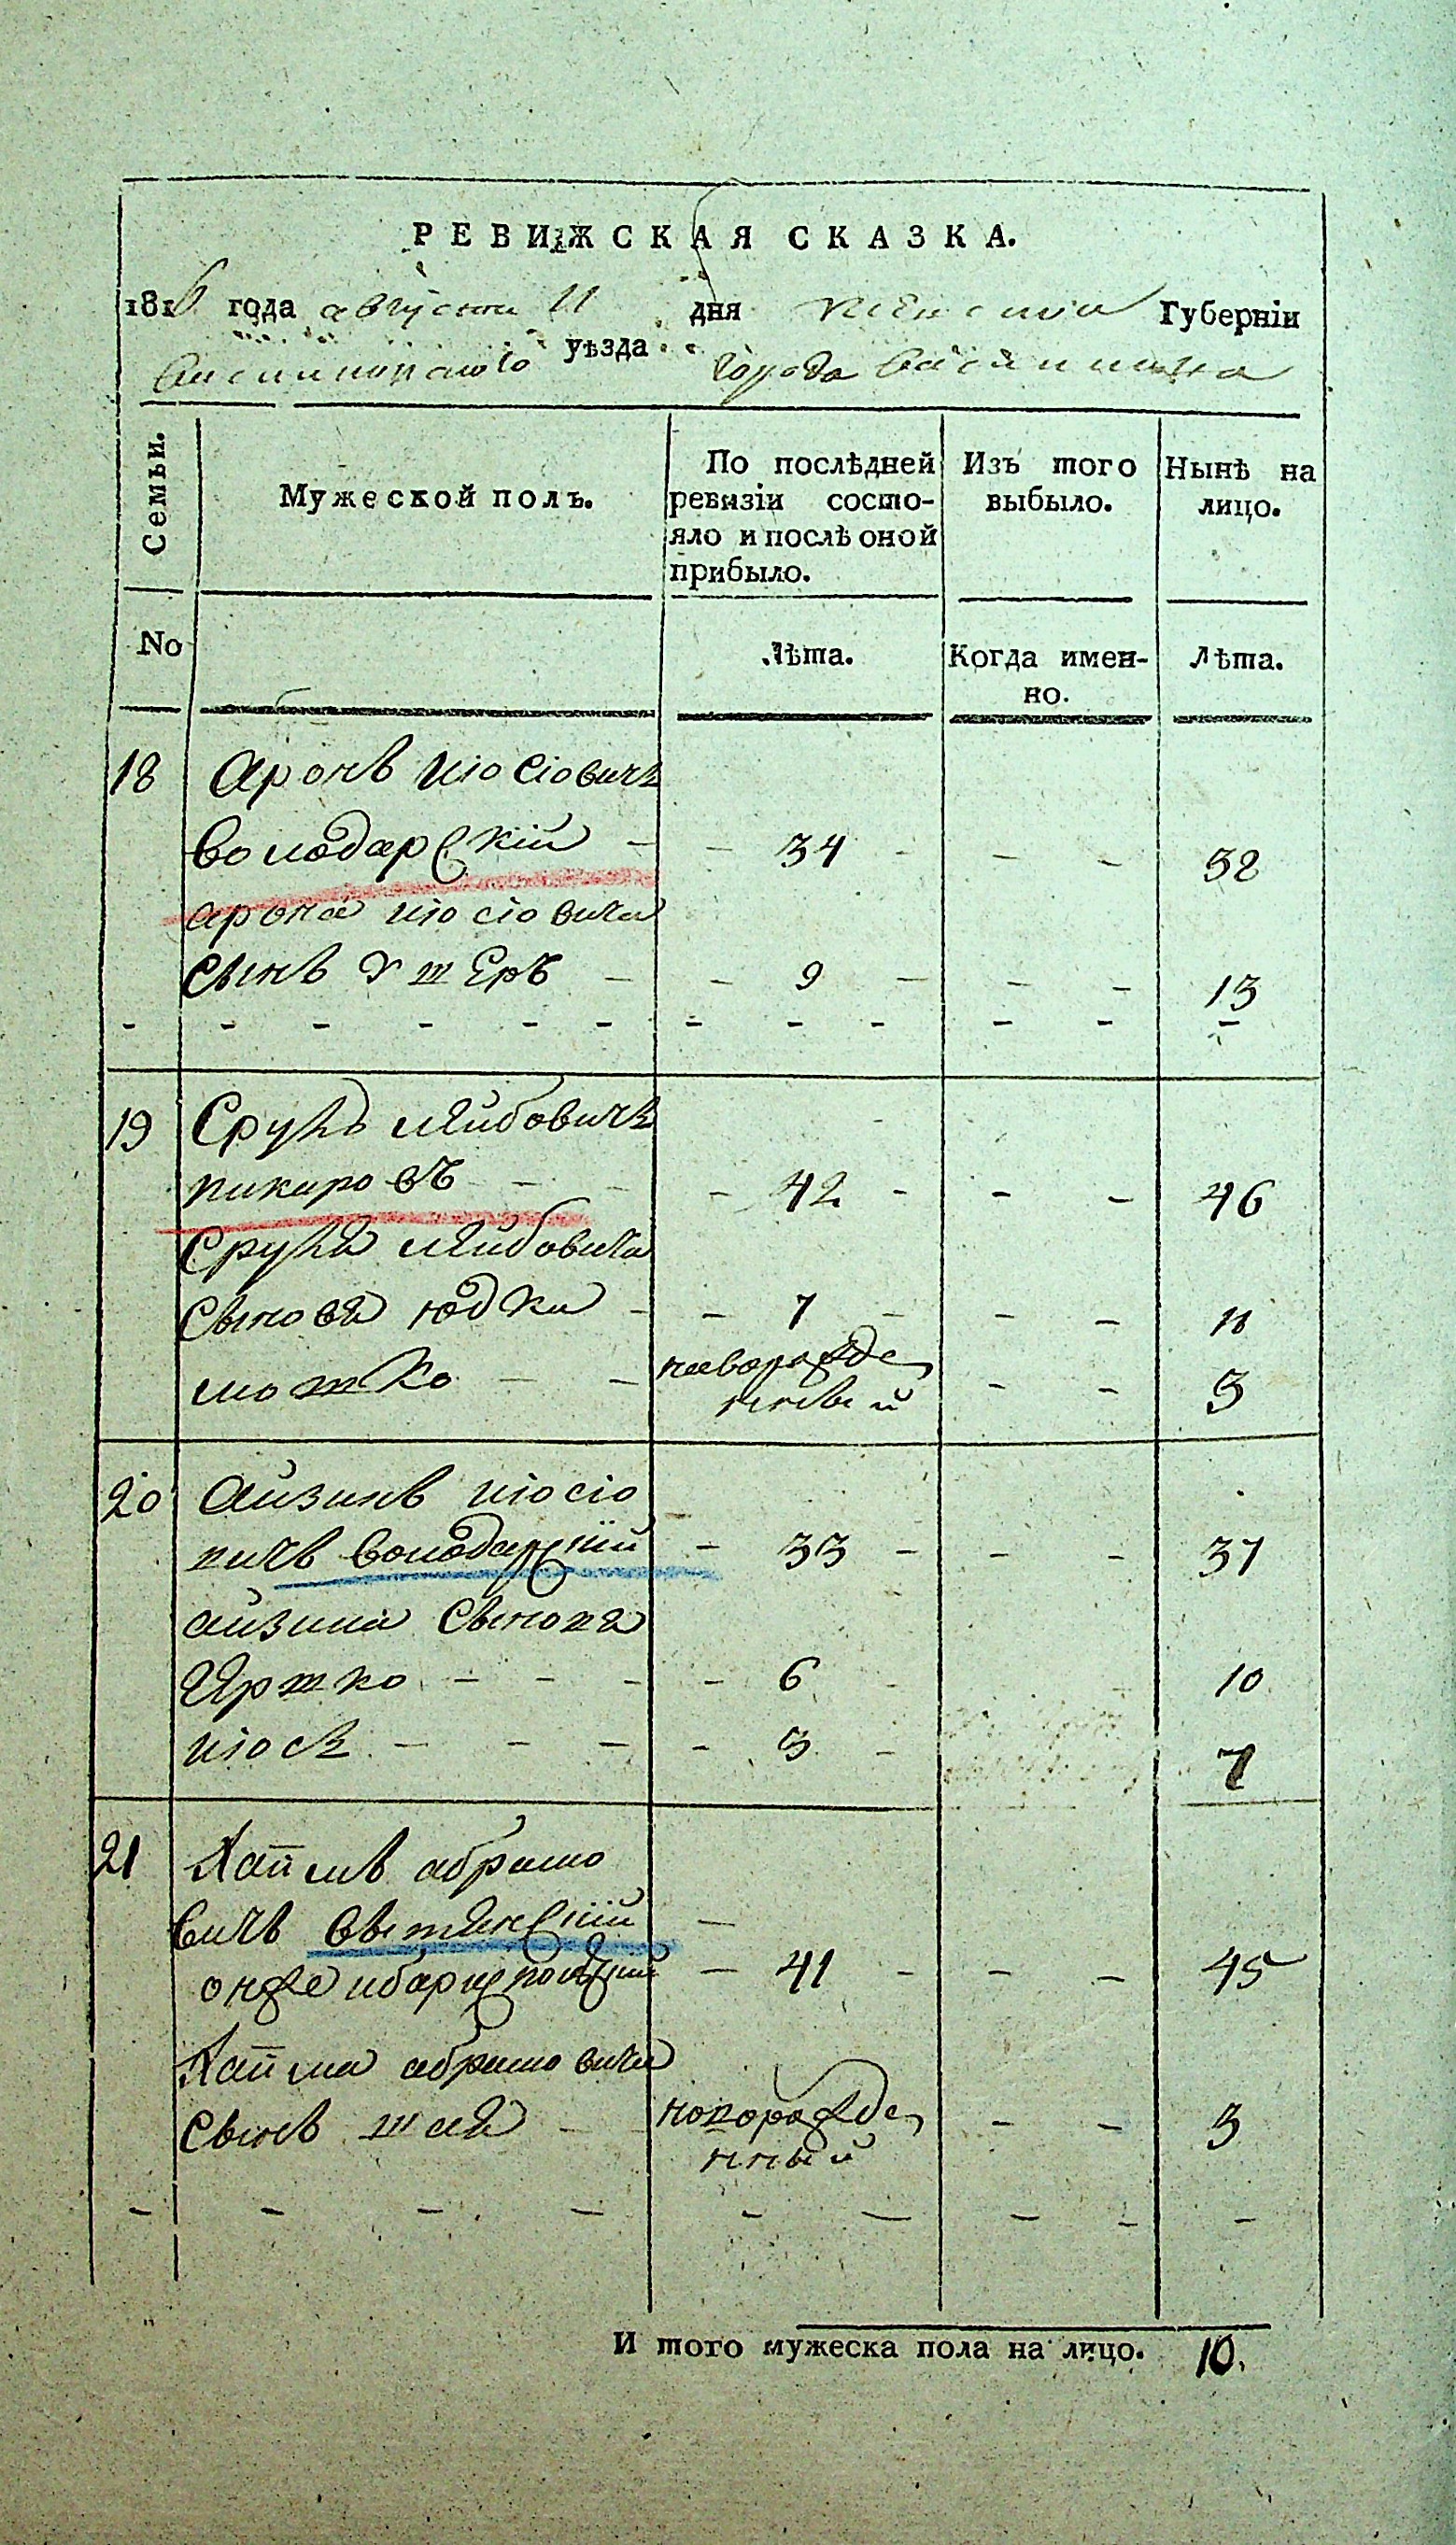 РЕВИЖСКАЯ СКАЗКА.
1816 года августа 11 дня Киевскїя Губернїи
уѣзда города
Семьи.
Мужеской полъ.
По послѣдней ревизїи состо-
яло и послѣ оной
прибыло.
Изъ того
выбыло.
Нынѣ на
лицо.
No
Лѣта.
Когда имен-
но.
Лѣта.
18 Аронъ Иосіовичъ
Володарскій - - 34 - - - 38
Арона Иосіовича
сынъ Ушеръ - - 9 - - - 13
19 Сруль Лейбовичъ
- - 42 - - - 46
Сруля Лейбовича
сыновя Юдка - - 7 - - - 11
Мошко - - новорожде
нный - - 3
20 Айзикъ Иосіо
вичъ Володарскій - 33 - - - 37
Айзика сыновя
Ершко - - - - 6 - 10
Иось - - - - 3 - 7
21 Хаимъ Абрамо
вичъ
онже - 41 - - - 45
Хаима Абрамовича
сынъ - новорожде
нный - - 3
И того мужеска пола на лицо. 10.